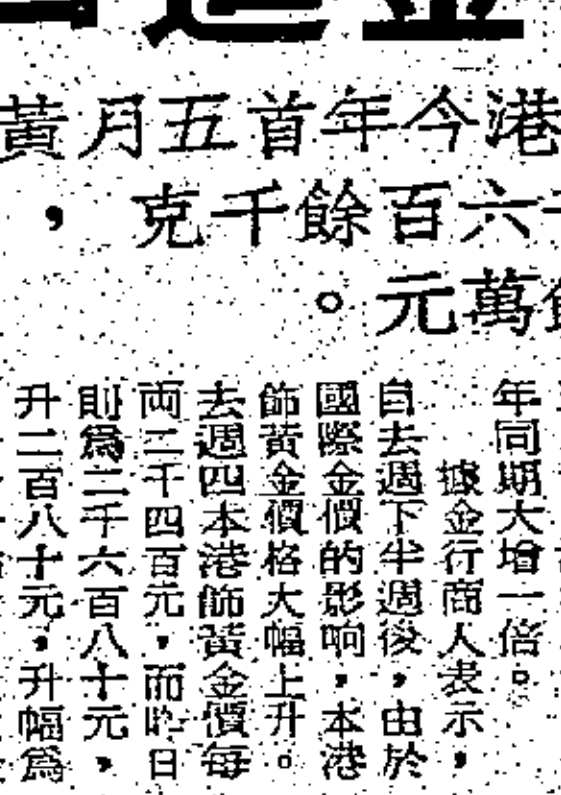 港今年首五月黃
六百餘千克，
萬元。
年同期大增一倍。
據金行商人表示，
自去週下半週後，由於
國際金價的影响，本港
飾黃金價格大幅上升。
去週四本港飾黃金價每
両二千四百元，而昨日
則爲二千六百八十元，
升二百八十元，升幅爲